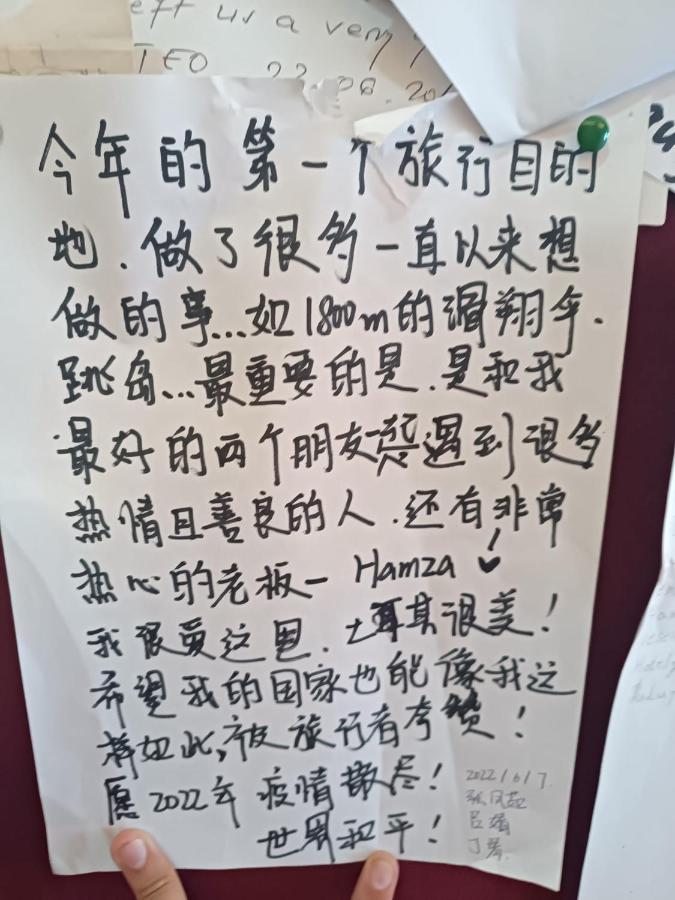 eff us a very
TEO 22.08.201
今年的第一个旅行目的
地.做了很多一直以来想
做的事...如1800m的滑翔伞.
跳岛...最重要的是.是和我
最好的两个朋友一起遇到很多
热情且善良的人.还有非常
热心的老板- Hamza
我很爱这里.土耳其很美!
希望我的国家也能像我这
样如此,被旅行者夸赞!
愿2022年疫情散尽!
世界和平!
2022/6/7